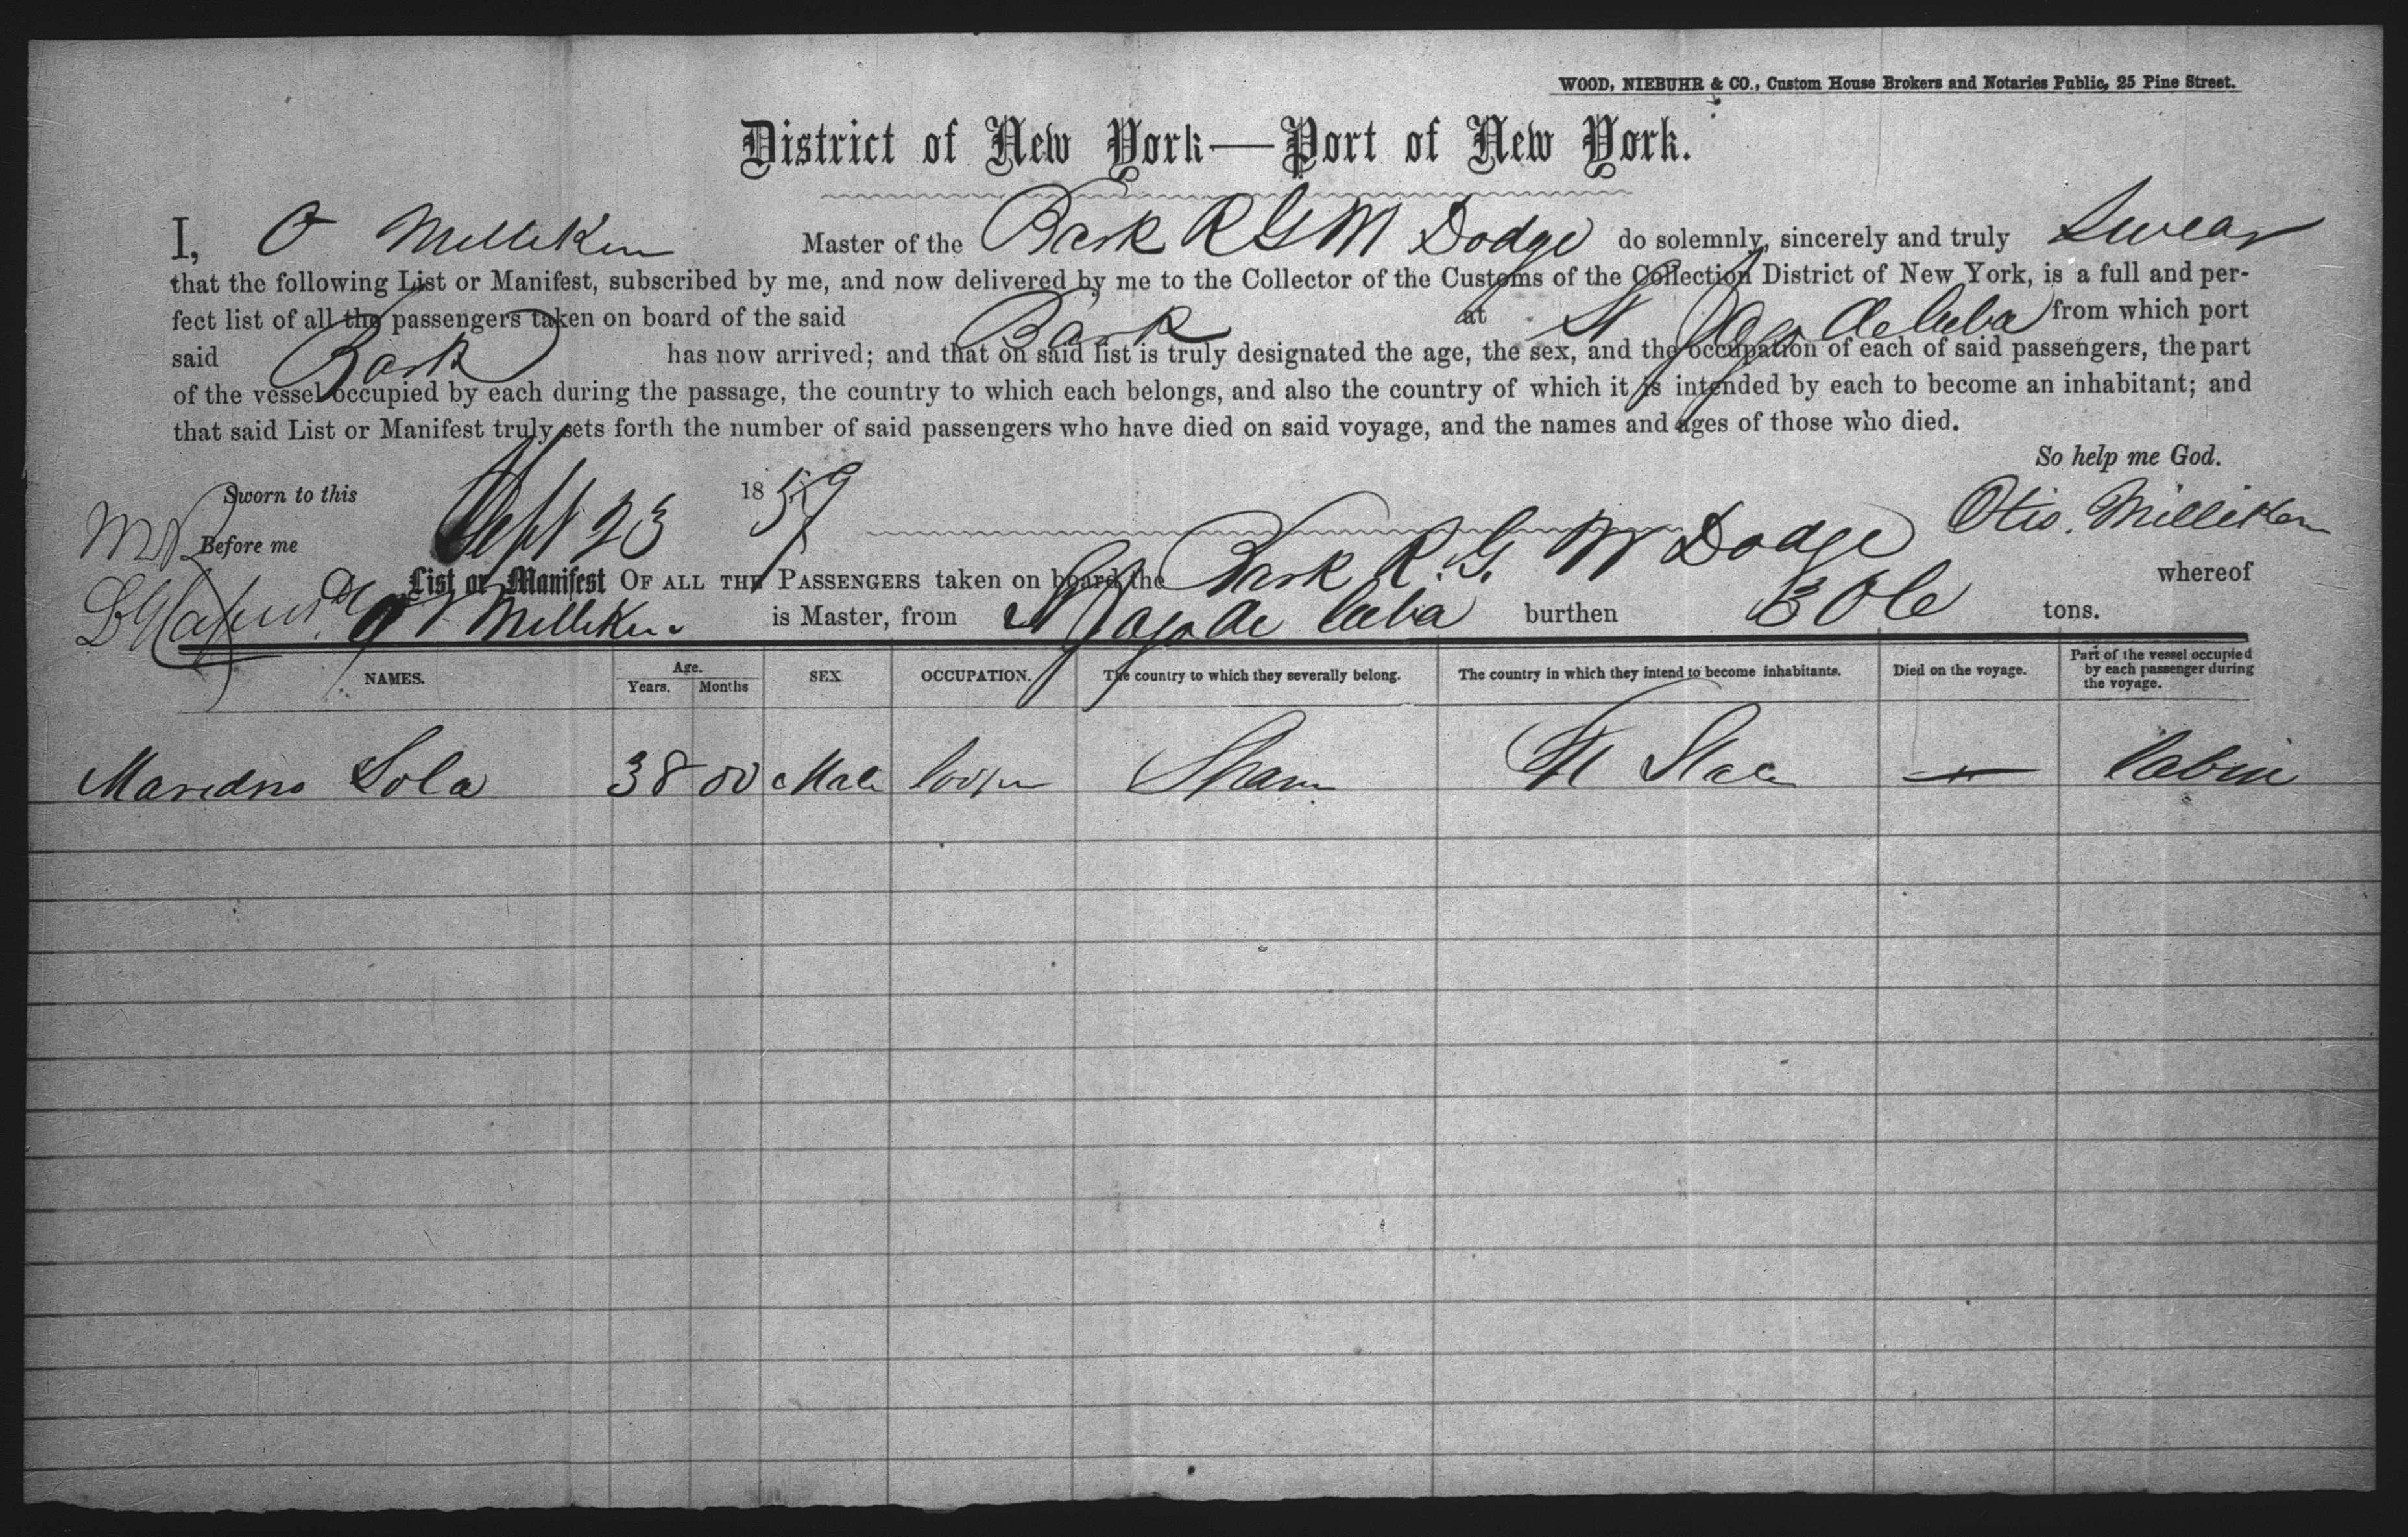 WOOD, NIEBUHR & CO., Custom House Brokers and Notaries Public, 25 Pine Street.
District of New York—Port of New York.
I, O Milliken Master of the Bark R G W Dodge do solemnly, sincerely and truly Swear
that the following List or Manifest, subscribed by me, and now delivered by me to the Collector of the Customs of the Collection District of New York, is a full and per-
fect list of all the passengers taken on board of the said Bark at St Jago de Cuba from which port
said Bark has now arrived; and that on said list is truly designated the age, the sex, and the occupation of each of said passengers, the part
of the vessel occupied by each during the passage, the country to which each belongs, and also the country of which it is intended by each to become an inhabitant; and
that said List or Manifest truly sets forth the number of said passengers who have died on said voyage, and the names and ages of those who died.
So help me God.
Sworn to this Sept 23 1859
Before me Otis Milliken
List or Manifest OF ALL THE PASSENGERS taken on board the Bark R. G. W Dodge whereof
O Milliken is Master, from St Jago de Cuba burthen 306 tons.
NAMES. Age. Years. Months SEX OCCUPATION. The country to which they severally belong. The country in which they intend to become inhabitants. Died on the voyage. Part of the vessel occupied by each passenger during the voyage.
Sola 38 00 Male Cooper Spain Cabin